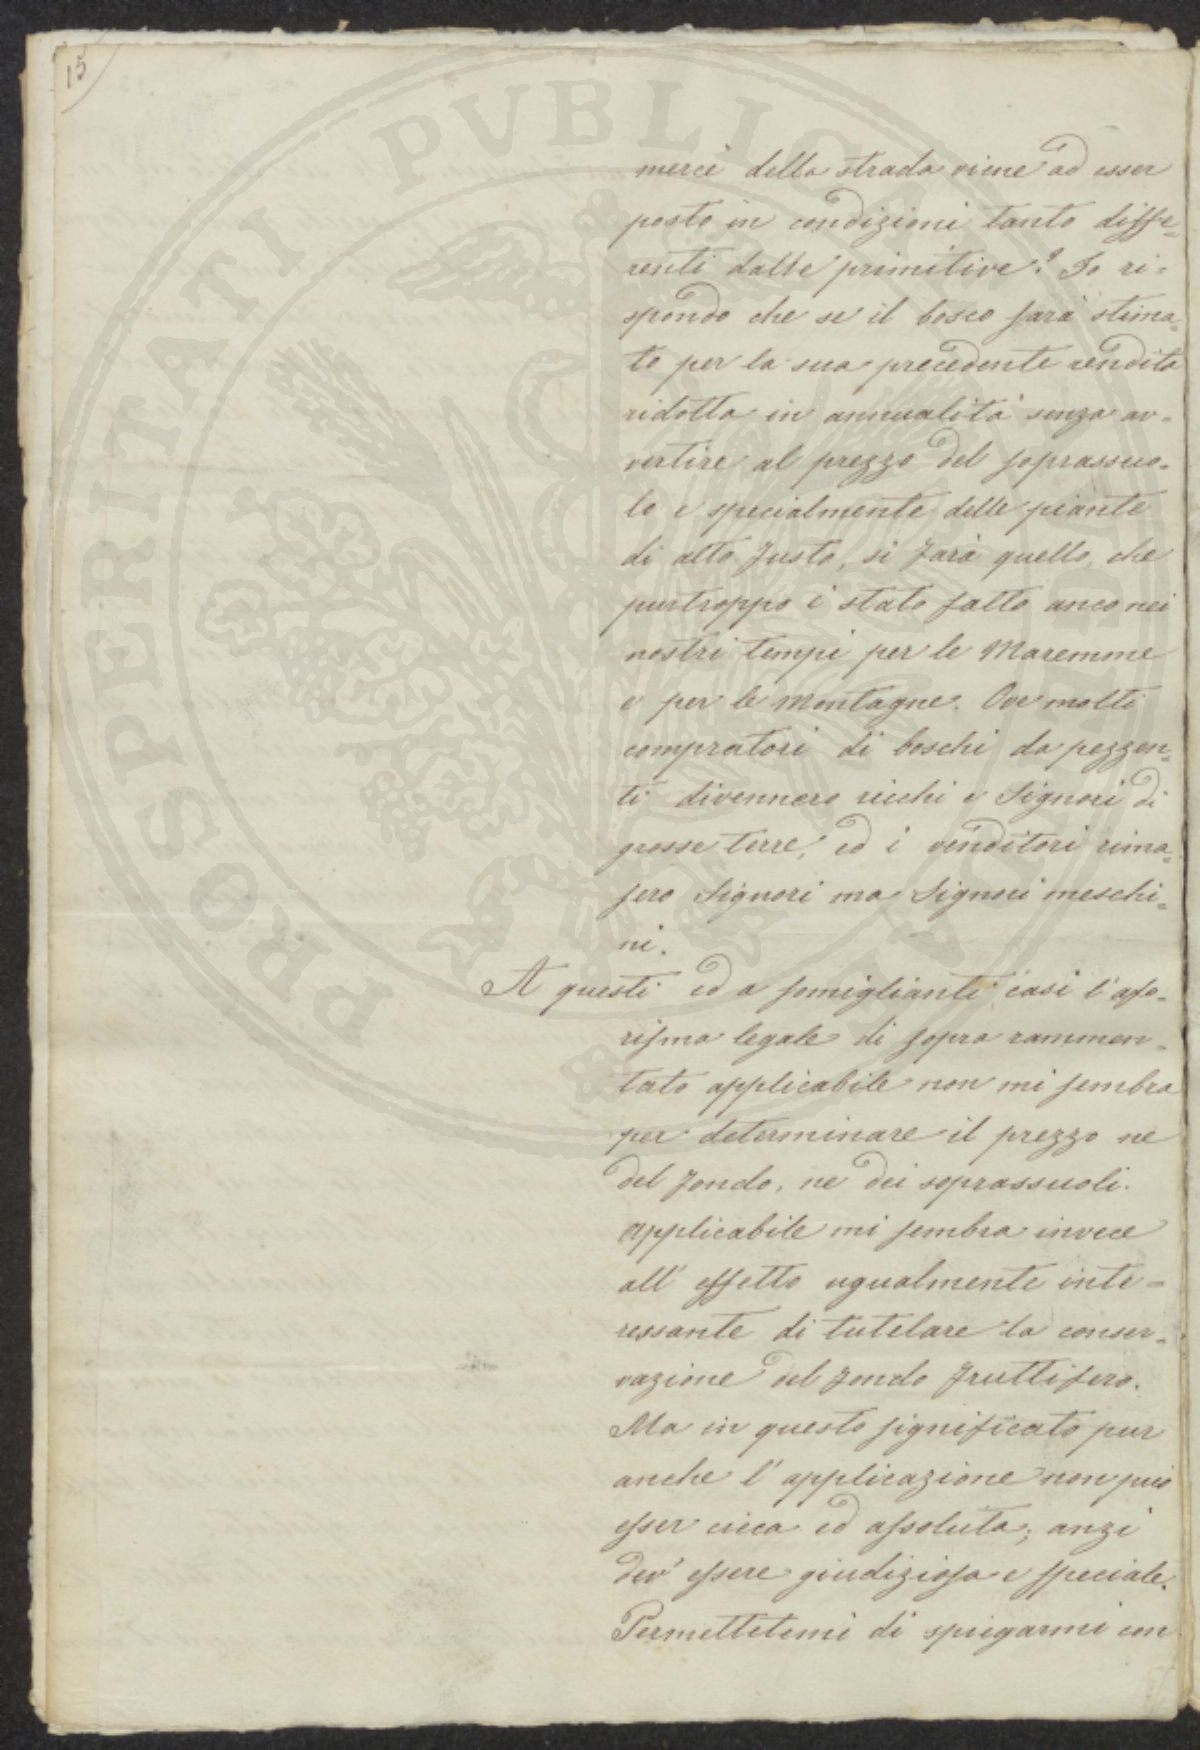 15
mercè della strada viene ad esser
posto in condizioni tanto diffe=
renti dalle primitive? Io ri=
spondo che se il bosco sarà stima=
to per la sua precedente rendita
ridotta in annualità senza av=
vertire al prezzo del soprassuo=
lo e specialmente delle piante
di alto fusto, si farà quello, che
purtroppo è stato fatto anco nei
nostri tempi per le Maremme
e per le Montagne. Ove molti
compratori di boschi da pezzen=
ti divennero ricchi e Signori di
grosse terre, ed i venditori rima=
sero Signori ma Signori meschi=
ni.
A questi ed a somiglianti casi l'afo=
rismo legale di sopra rammen=
tato applicabile non mi sembra
per determinare il prezzo ne
del fondo, ne dei soprassuoli.
Applicabile mi sembra invece
all'effetto ugualmente inte=
ressante di tutelare la conser=
vazione del fondo fruttifero.
Ma in questo significato pur
anche l'applicazione non può
esser cieca ed assoluta; anzi
dev'essere giudiziosa e speciale.
Permettetemi di spiegarmi con
PROSPERITATI PUBLICAE